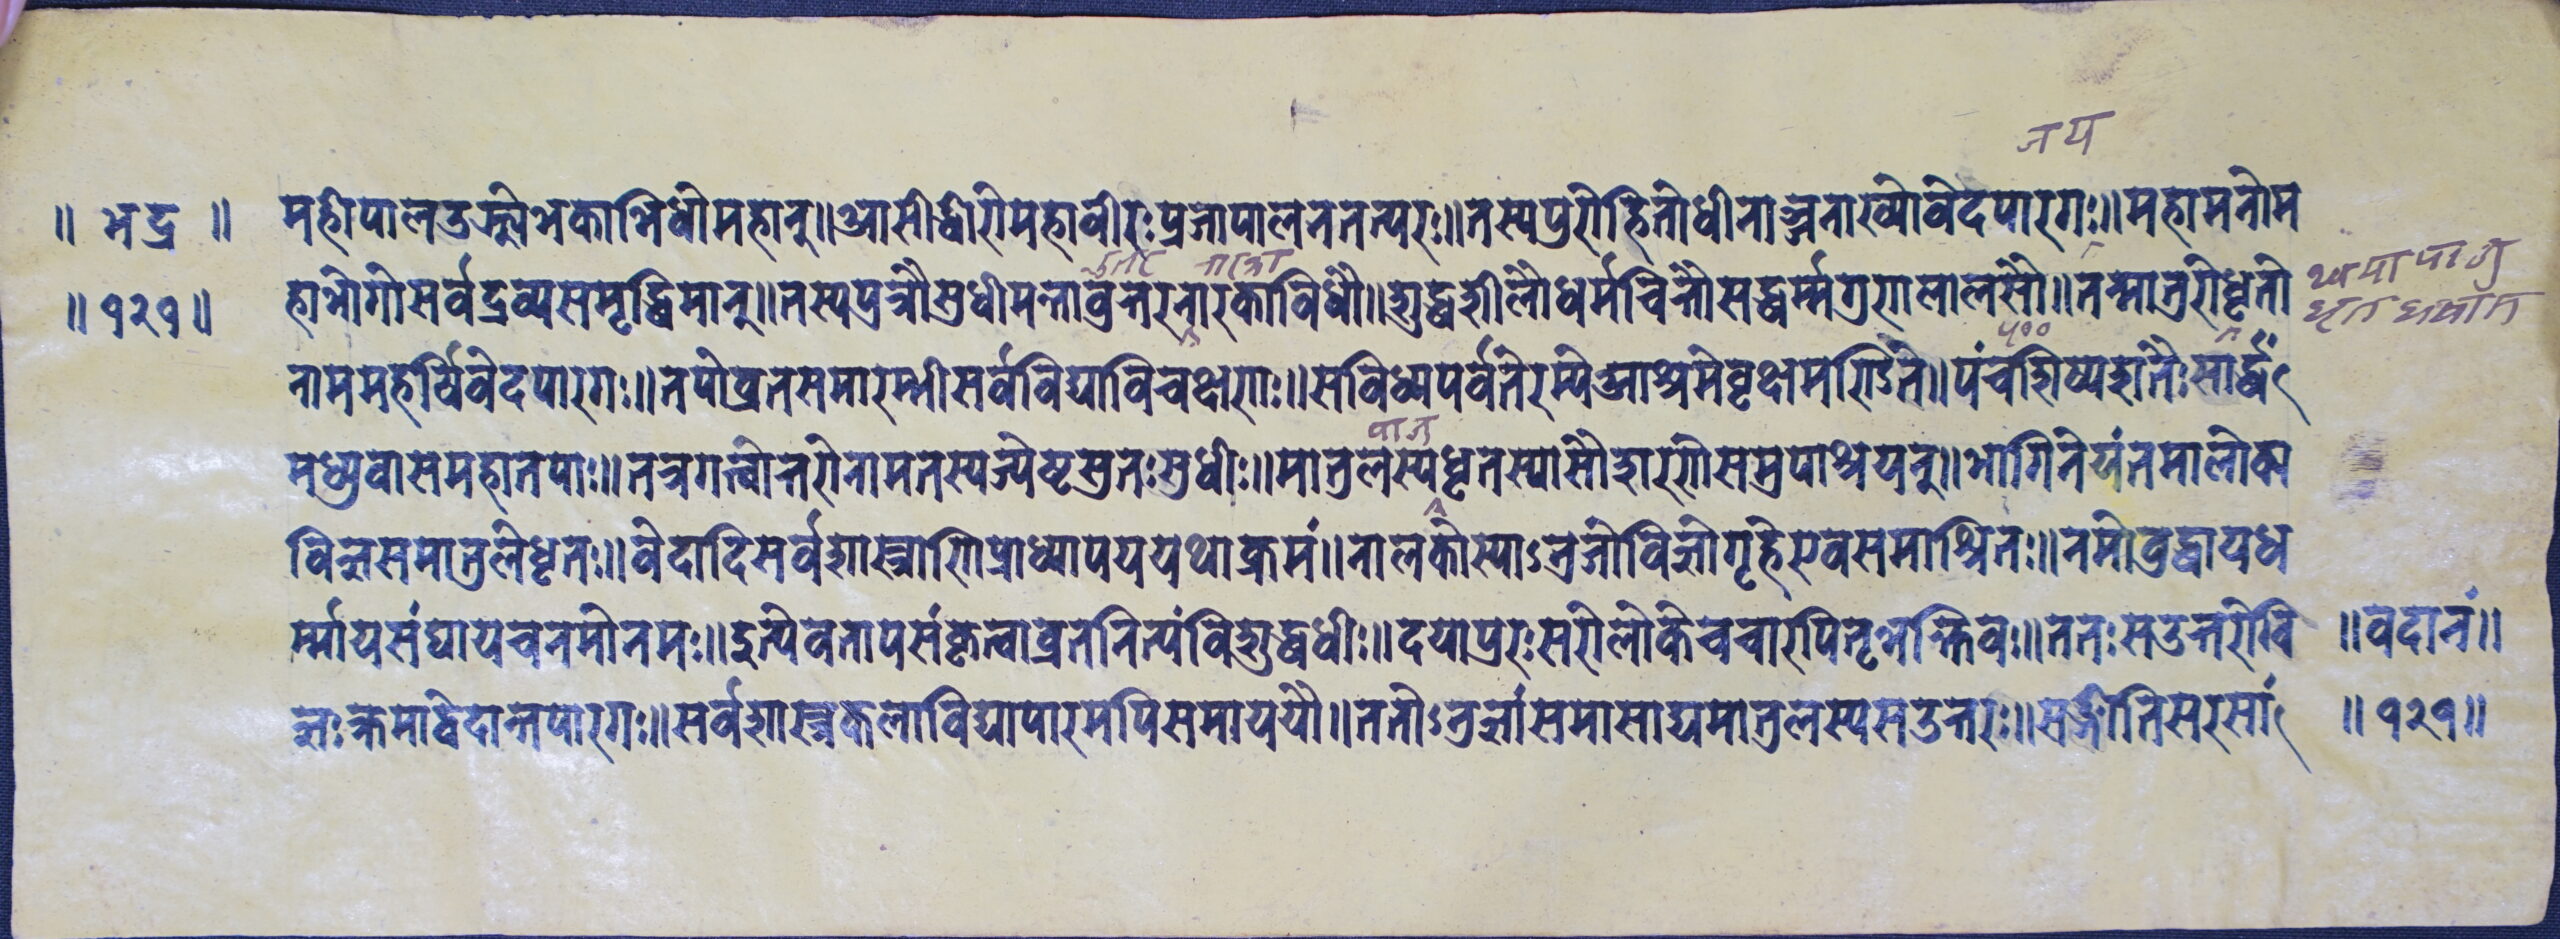 जय
॥ भद्र ॥ महीपालउज्झ्वोभकाभिधोमहान्॥आसीद्धीरोमहावीरःप्रजापालनतत्परः॥तस्यपुरोहितोधीनाञ्जनाख्योवेदपारगः॥महामनोम
॥१२१॥ हाभोगीसर्वद्रव्यसमृद्धिमान्॥तस्यपुत्रौसुधीमन्तावुत्तरनारकाविधौ॥शुद्धशीलौधर्मचित्तौसद्धर्म्मगुणलालसौ॥तन्मातुरोधृतो
५००
नाममहर्षिर्वेदपारगः॥तपोव्रतसमारम्भीसर्वविद्याविचक्षणः॥सविध्यपर्वतेरम्येआश्रमेवृक्षमण्डिते॥पंचशिष्यशतैःसार्द्धं
पाजु
मध्युवासमहातपाः॥तत्रगत्वोत्तरोनामतस्यज्येष्टसुतःसुधीः॥मातुलस्यधृतस्यासौशरणेसमुपाश्रयत्॥भागिनेयंतमालोक्य
विज्ञसमातुलोधृतः॥वेदादिसर्वशास्त्राणिप्राध्यापययथाक्रमं॥नालकोस्याऽनुजोविज्ञोगृहेएवसमाश्रितः॥नमोबुद्धायध
र्म्मायसंघायचनमोनमः॥इत्येवतापसंकृत्वाव्रतेनित्यंविशुद्धधीः॥दयापुरःसरोलोकेचचारपितृभक्तिवः॥ततःसउत्तरोवि ॥वदानं॥
ज्ञःक्रमाद्वेदान्तपारगः॥सर्वशास्त्रकलाविद्यापारमपिसमाययौ॥ततोऽनुज्ञांसमासाद्यमातुलस्यसउत्तरः॥सङ्गीतिसरसां ॥१२१॥